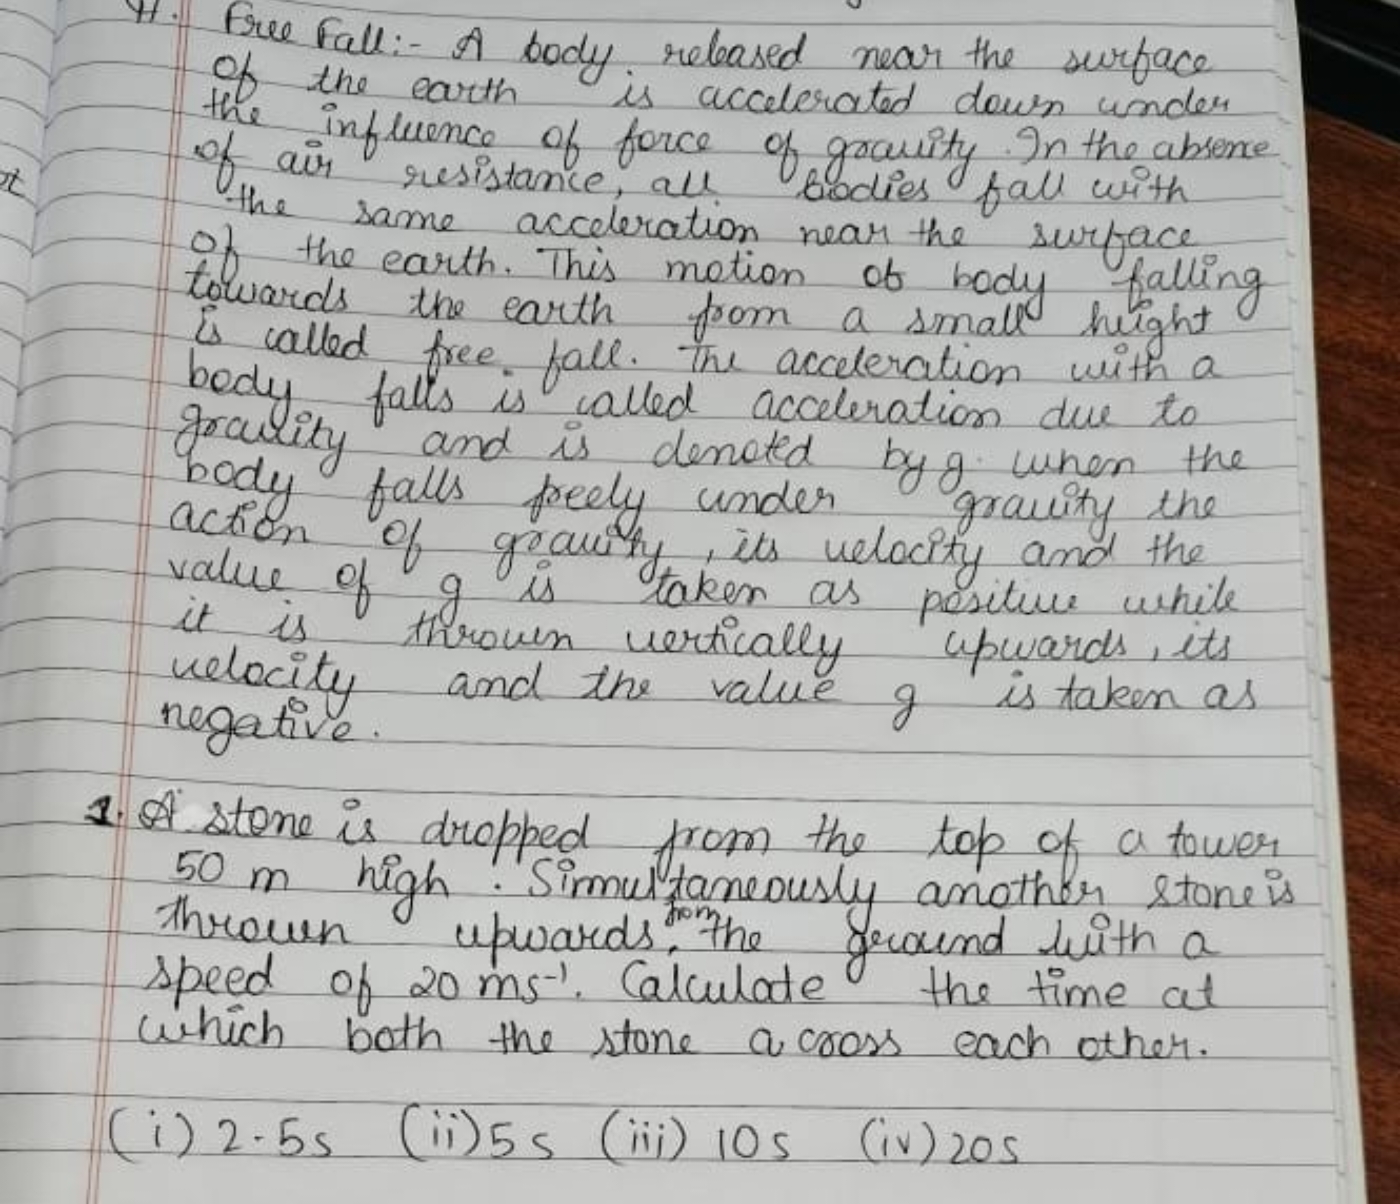 Free Fall:- A body released near the surface
of the earth is accelerated down under
the influence of force of gravity. In the absene
of air resistance, all bodies fall with
the same acceleration near the surface
of the earth. This motion of body falling
towards the earth from a small height
is called free fall. The acceleration with a
body falls is called acceleration due to
gravity and is denoted by g. when the
body falls freely under gravity the
action of gravity, its velocity and the
value of g is taken as positive while
it is thrown vertically upwards, its
velocity and the value g is taken as
negative.
1. A stone is dropped from the top of a tower
50 m high. Simmultaneously another stone is
thrown upwards from the ground with a
speed of 20 ms⁻¹. Calculate the time at
which both the stone across each other.
(i) 2.5s (ii) 5s (iii) 10s (iv) 20s